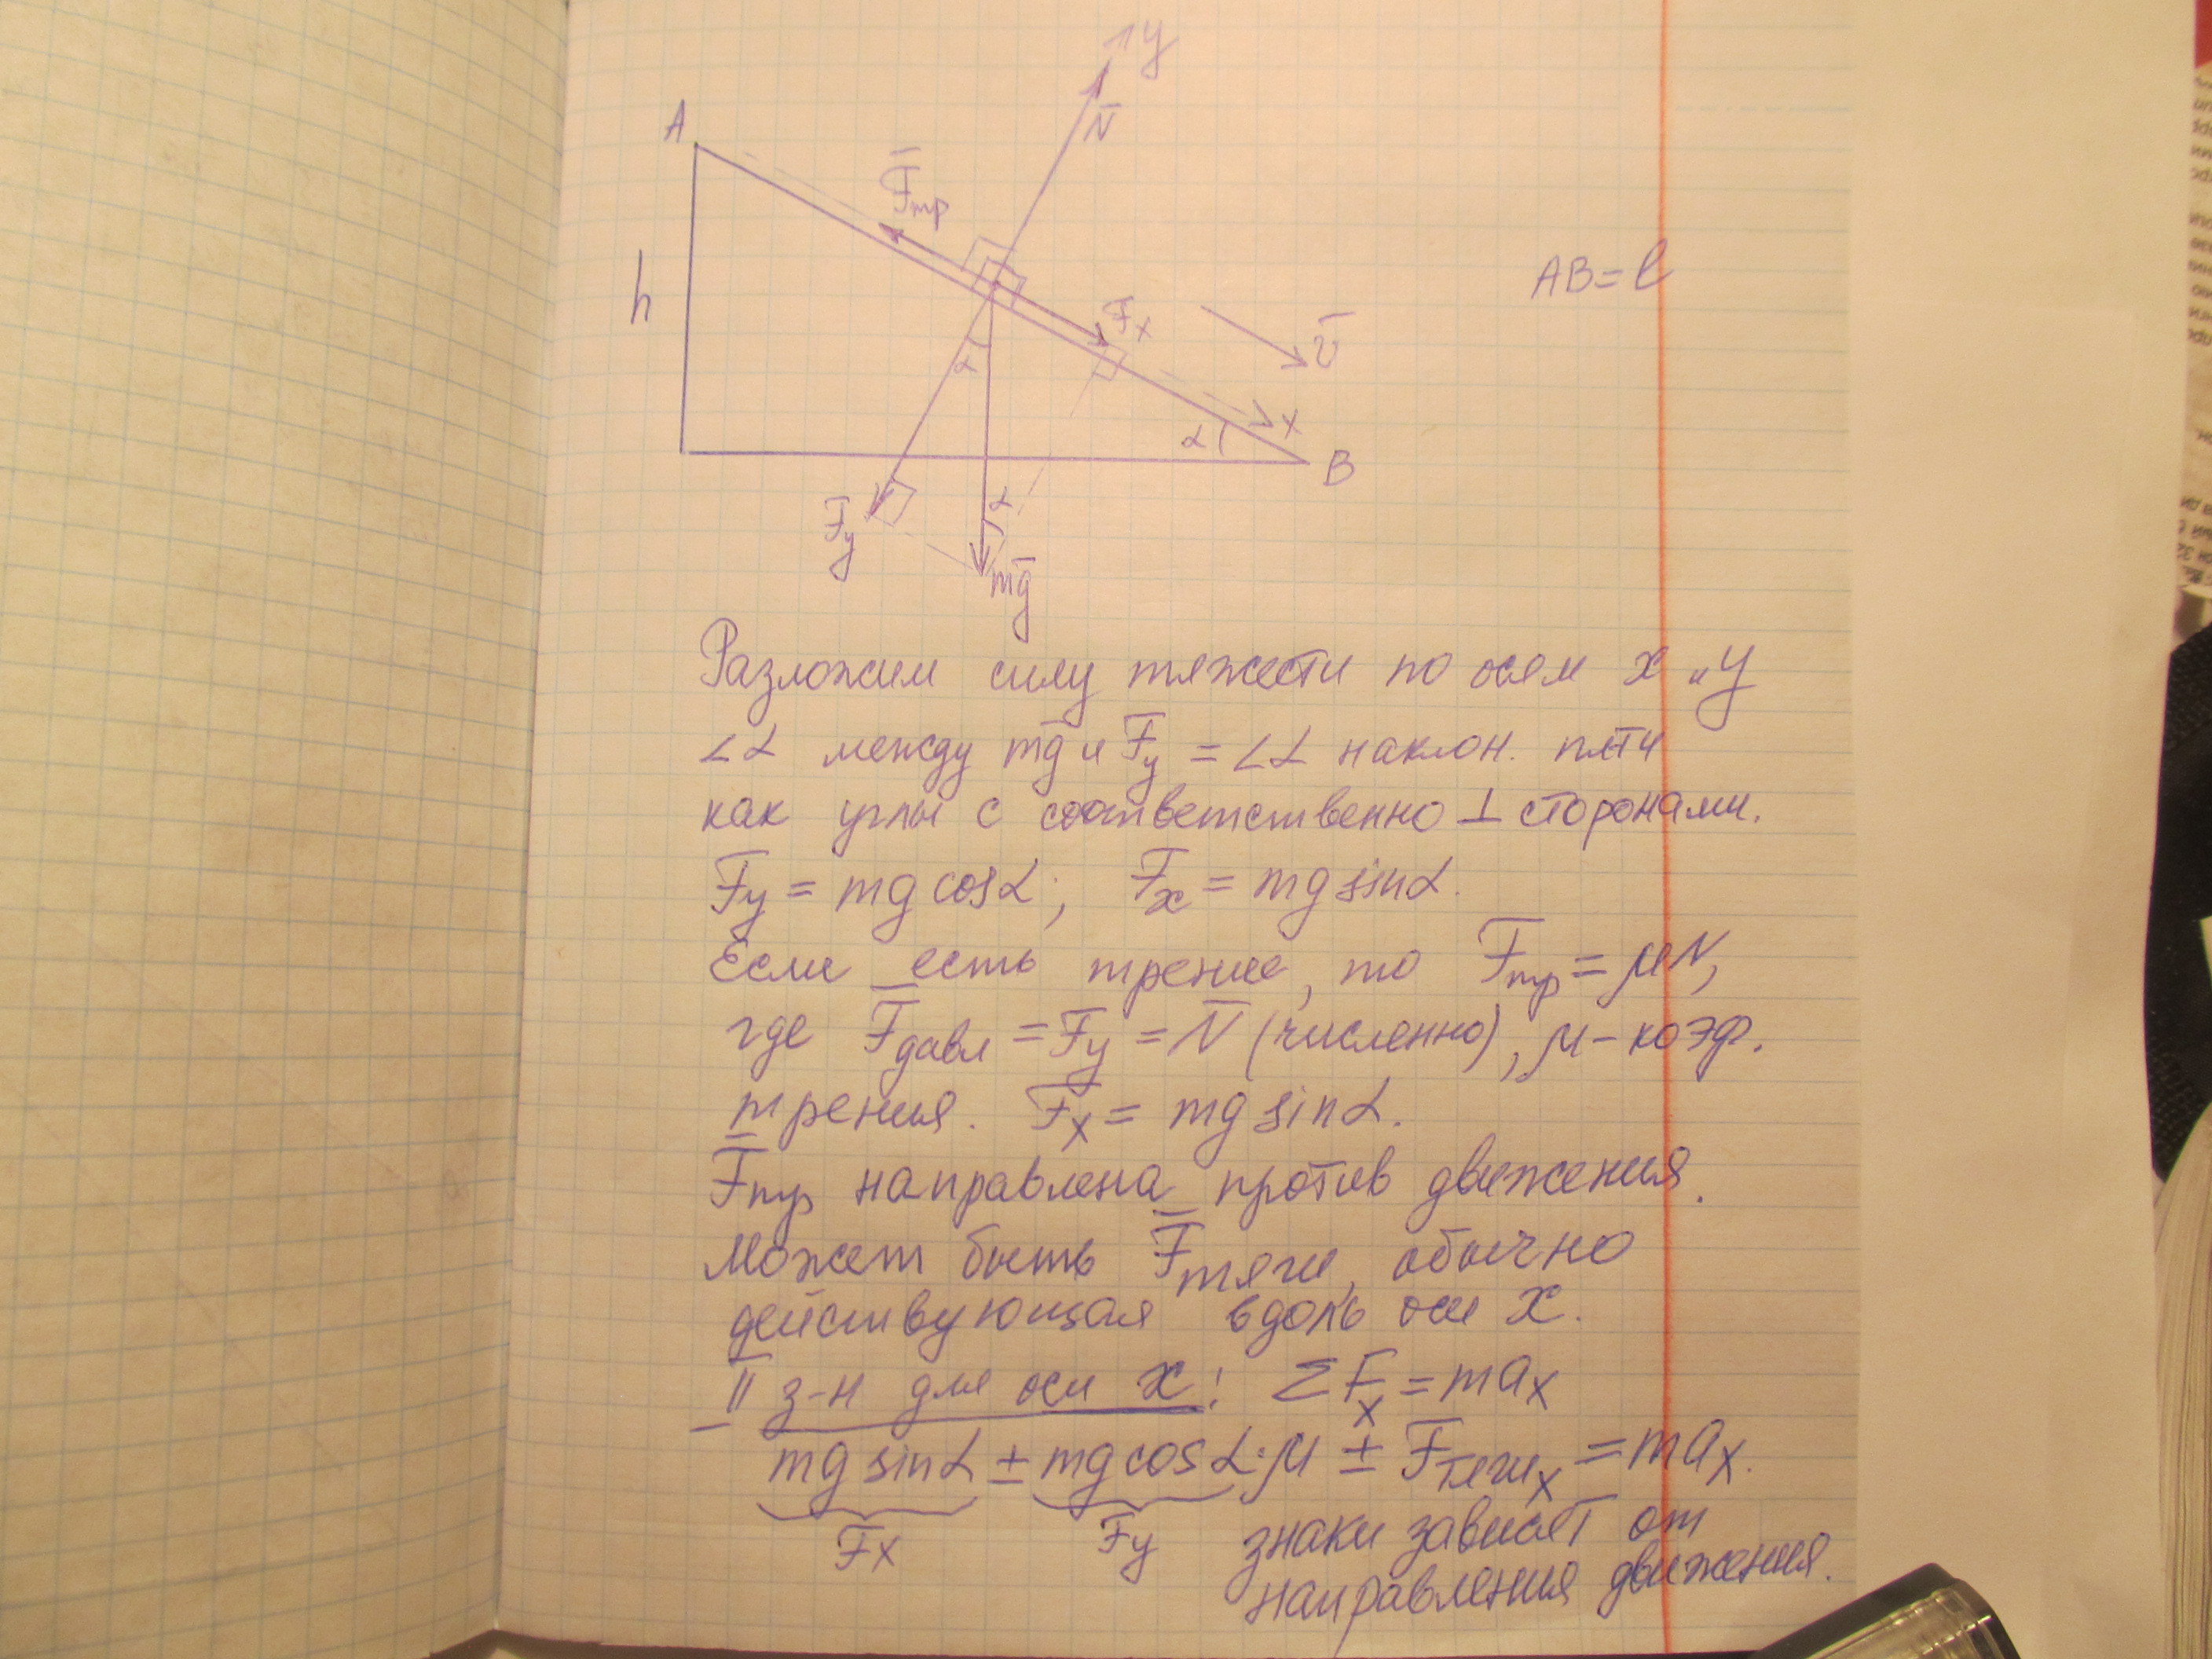 y
N̅
A
F̅тр
h
F̅x
AB = l
υ̅
α
x
α
B
α
F̅y
mg̅
Разложим силу тяжести по осям x и y
∠α между mg̅ и F̅y = ∠α наклон. пл-ти
как углы с соответственно ⊥ сторонами.
Fy = mg cosα; Fx = mg sinα.
Если есть трение, то Fтр = μN,
где F̅давл = F̅y = N̅ (численно), μ – коэф.
трения. Fx = mg sinα.
F̅тр направлена против движения.
Может быть F̅тяги, обычно
действующая вдоль оси x.
II з-н для оси x: ΣFx = max
mg sinα ± mg cosα·μ ± Fтягиx = max.
Fx Fy знаки зависят от
направления движения.